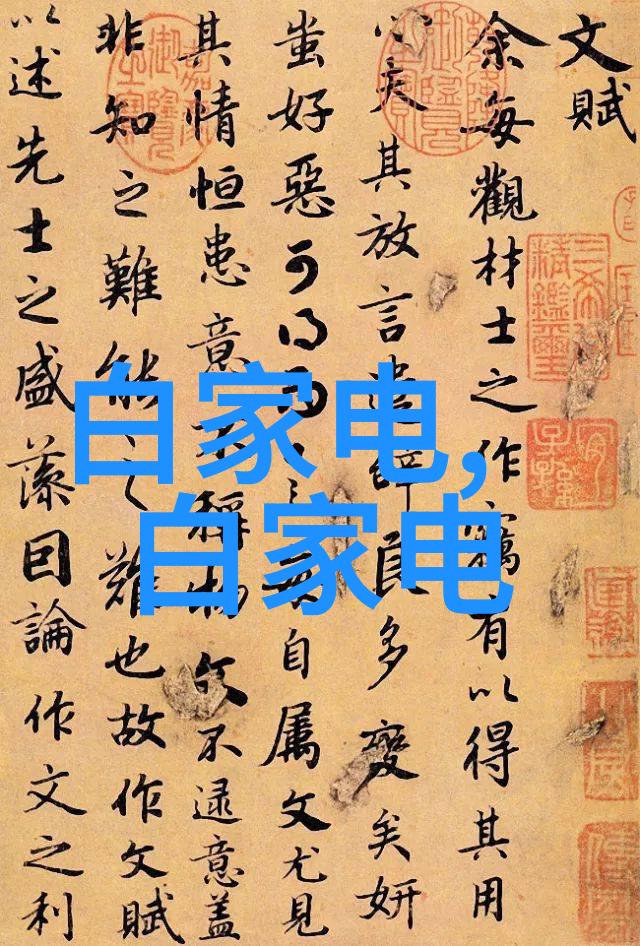 白家电,
白家电
文賦
余每觀材士之作竊有以得其用
心夫其放言遣辞良多變矣妍
蚩好惡可得而言每自属文尤見
其情恒患意不稱物文不逮意盖
非知之難能之難也故作文賦
以述先士之盛藻因論作文之利
三希堂
精鑑璽
宜
子孫